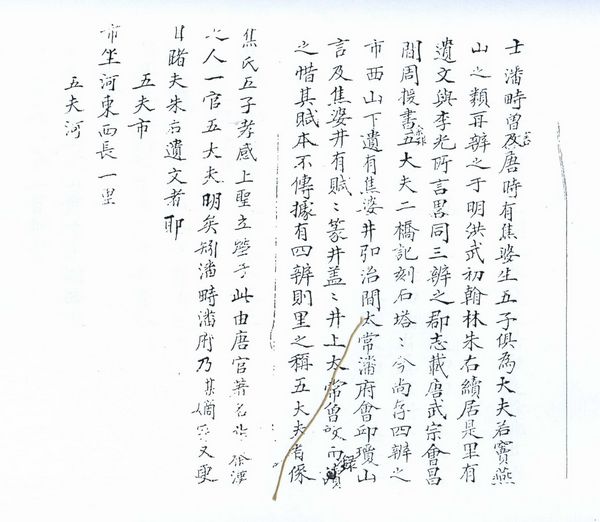 士潘時曾言及唐時有焦婆生五子俱為大夫若竇燕
山之類再辨之于明洪武初翰林朱右續居是里有
遺文與李光所言畧同三辨之郡志載唐武宗會昌
間周援書五大夫二橋記刻石塔塔今尚存四辨之
市西山下遺有焦婆井弘治間太常潘府會邱瓊山
言及焦婆井有賦賦篆井盖盖井上太常曾改而錄
之惜其賦本不傳據有四辨則里之稱五大夫者係
焦氏五子孝感上聖立塋于此由唐官著名
之人一官五大夫明矣矧潘時潘府乃其嫡又更
目睹夫朱右遺文者耶
五夫市
市坐河東西長一里
五夫河